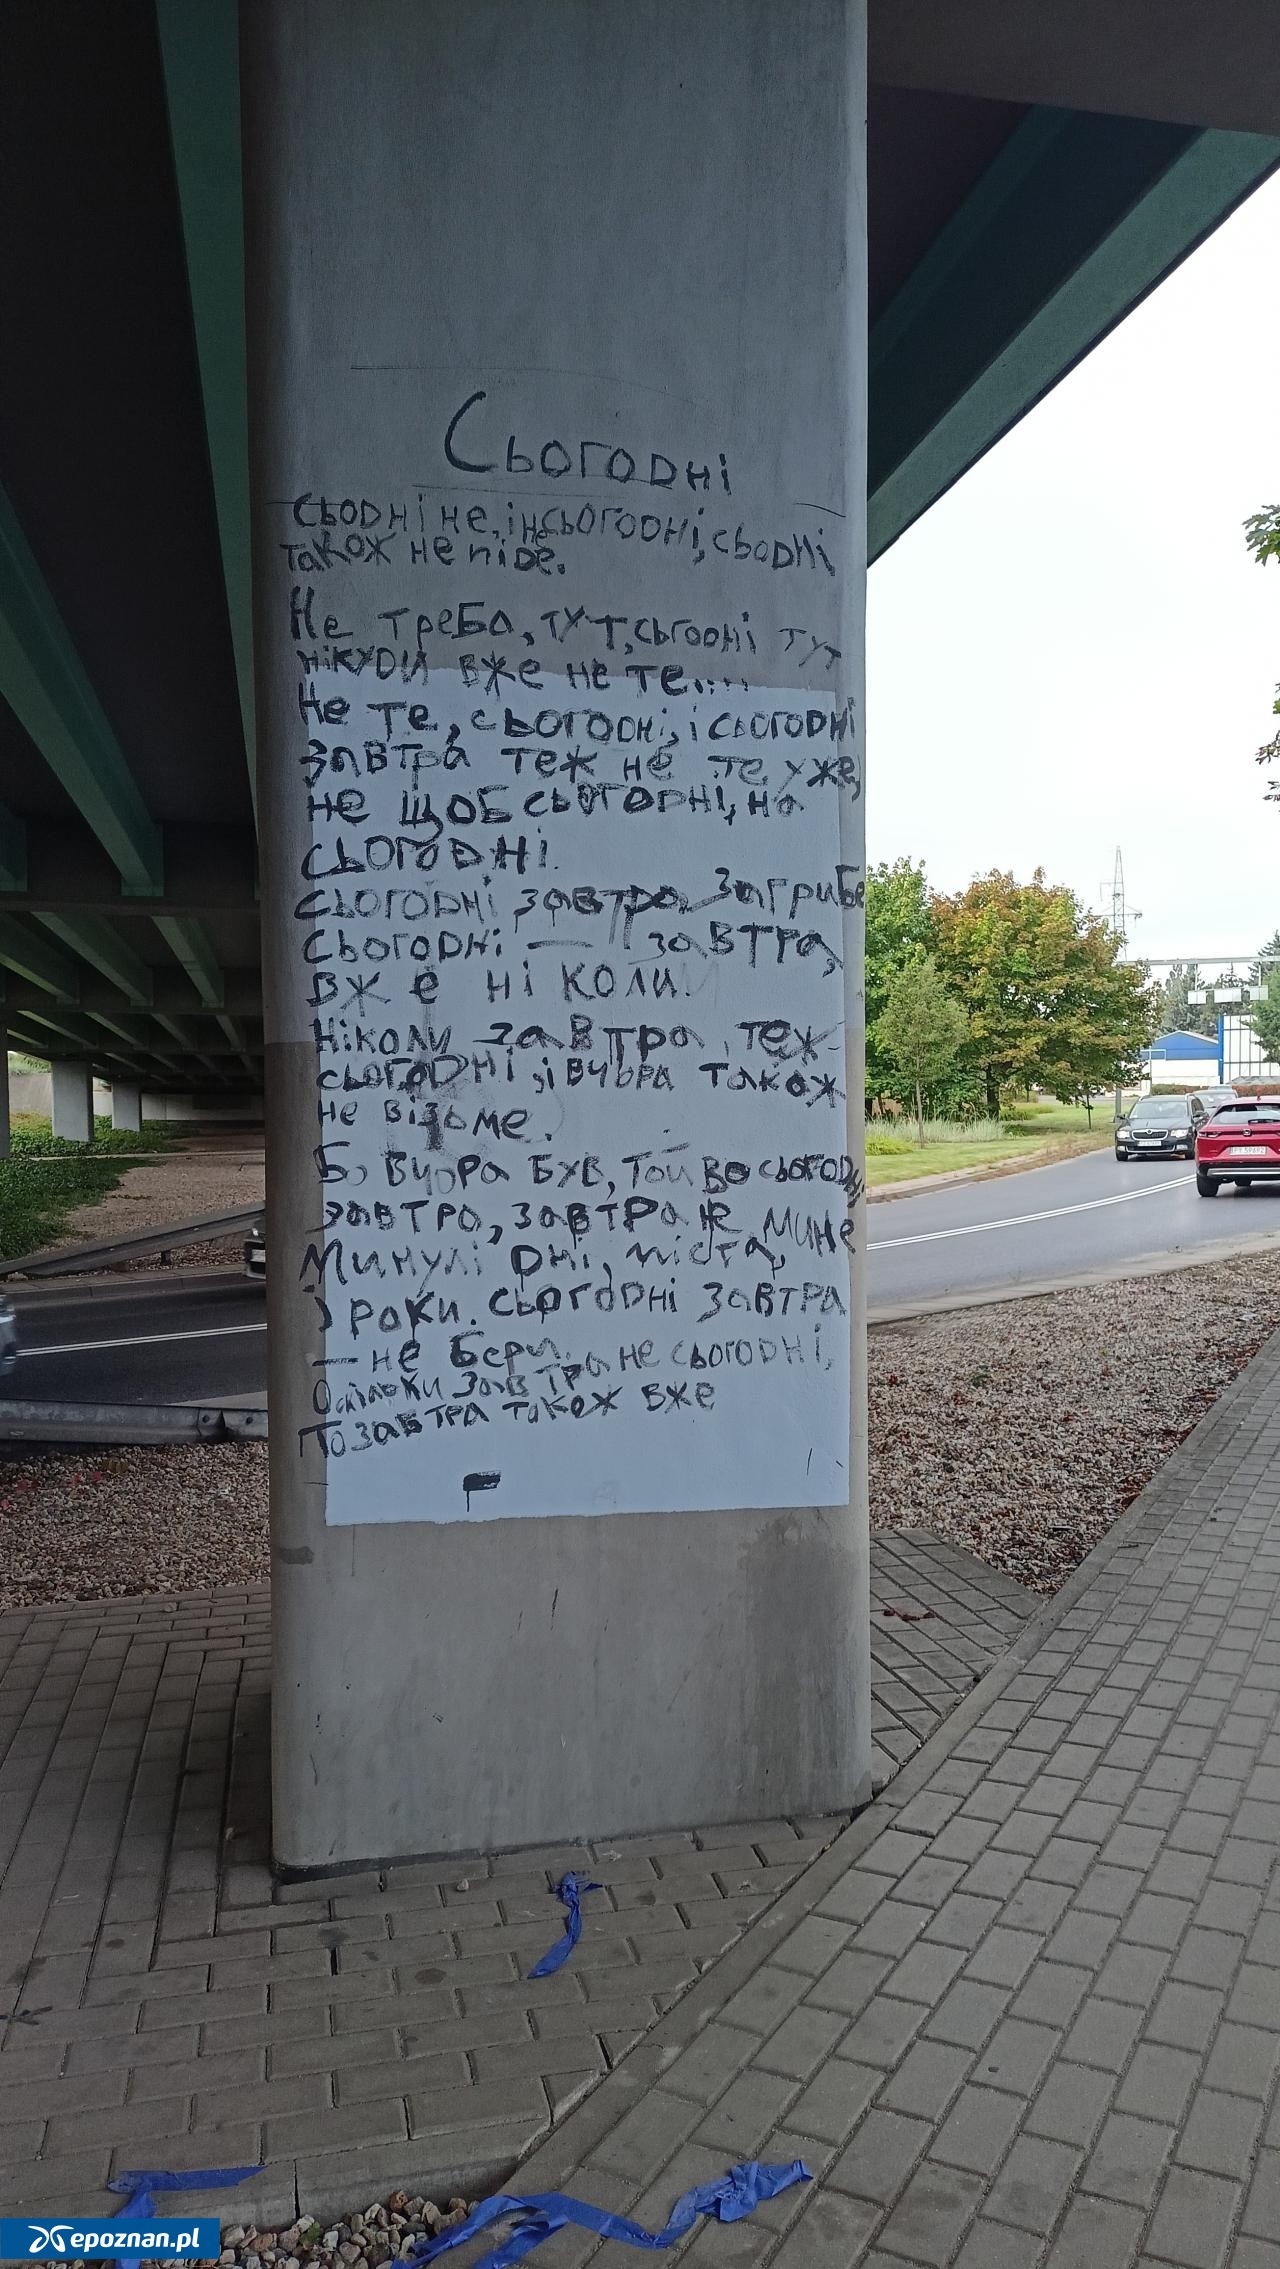 Сьогодні
сьодні не, і не сьогодні, сьодні
також не піде.
Не треба, тут, сьгодні тут
нікуди вже не те....
Не те, сьогодні, і сьогодні
завтра теж не те уже,
не щоб сьогодні, на
сьогодні.
сьогодні завтра загрибе
сьогодні — завтра,
вже ні коли.
Ніколи завтра, теж
сьогодні, і вчора також
не візьме.
Бо вчора був, той во сьогодні
завтра, завтра не мине
Минулі дні, міста,
і роки. сьогодні завтра
— не бери, не сьогодні,
Оскільки завтра
То завтра також вже
epoznan.pl